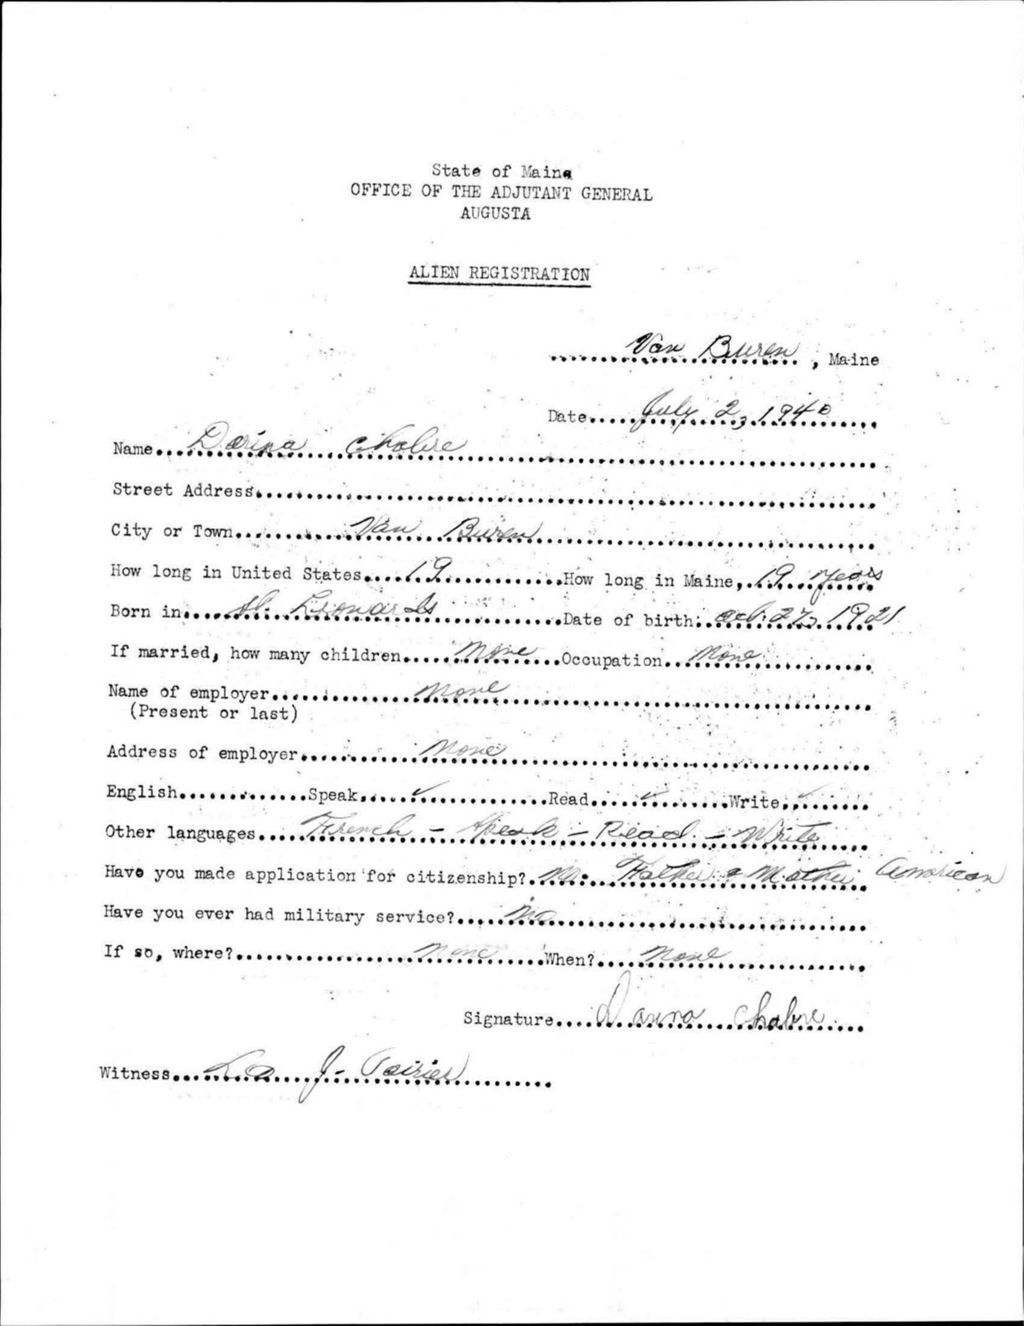 State of Maine
OFFICE OF THE ADJUTANT GENERAL
AUGUSTA
ALIEN REGISTRATION
Van Buren, Maine
Date July 2, 1940
Name Darina Chabre
Street Address
City or Town Van Buren
How long in United States 19 How long in Maine, 19 years
Born in St. Leonards Date of birth: Oct. 27, 1921
If married, how many children None Occupation None
Name of employer None
(Present or last)
Address of employer None
English Speak ✓ Read ✓ Write ✓
Other languages French - Speak - Read - Write
Have you made application for citizenship? No. Father & Mother American
Have you ever had military service? No
If so, where? None When? None
Signature Darina Chabre
Witness J. Poirier